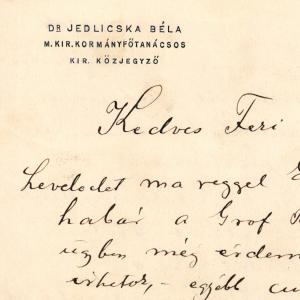 DR JEDLICSKA BÉLA
M. KIR. KORMÁNYFŐTANÁCSOS
KIR. KÖZJEGYZŐ
Kedves Feri
Leveledet ma reggel
habár a Grof
ügyben még érdem
vihetök, - egyébb